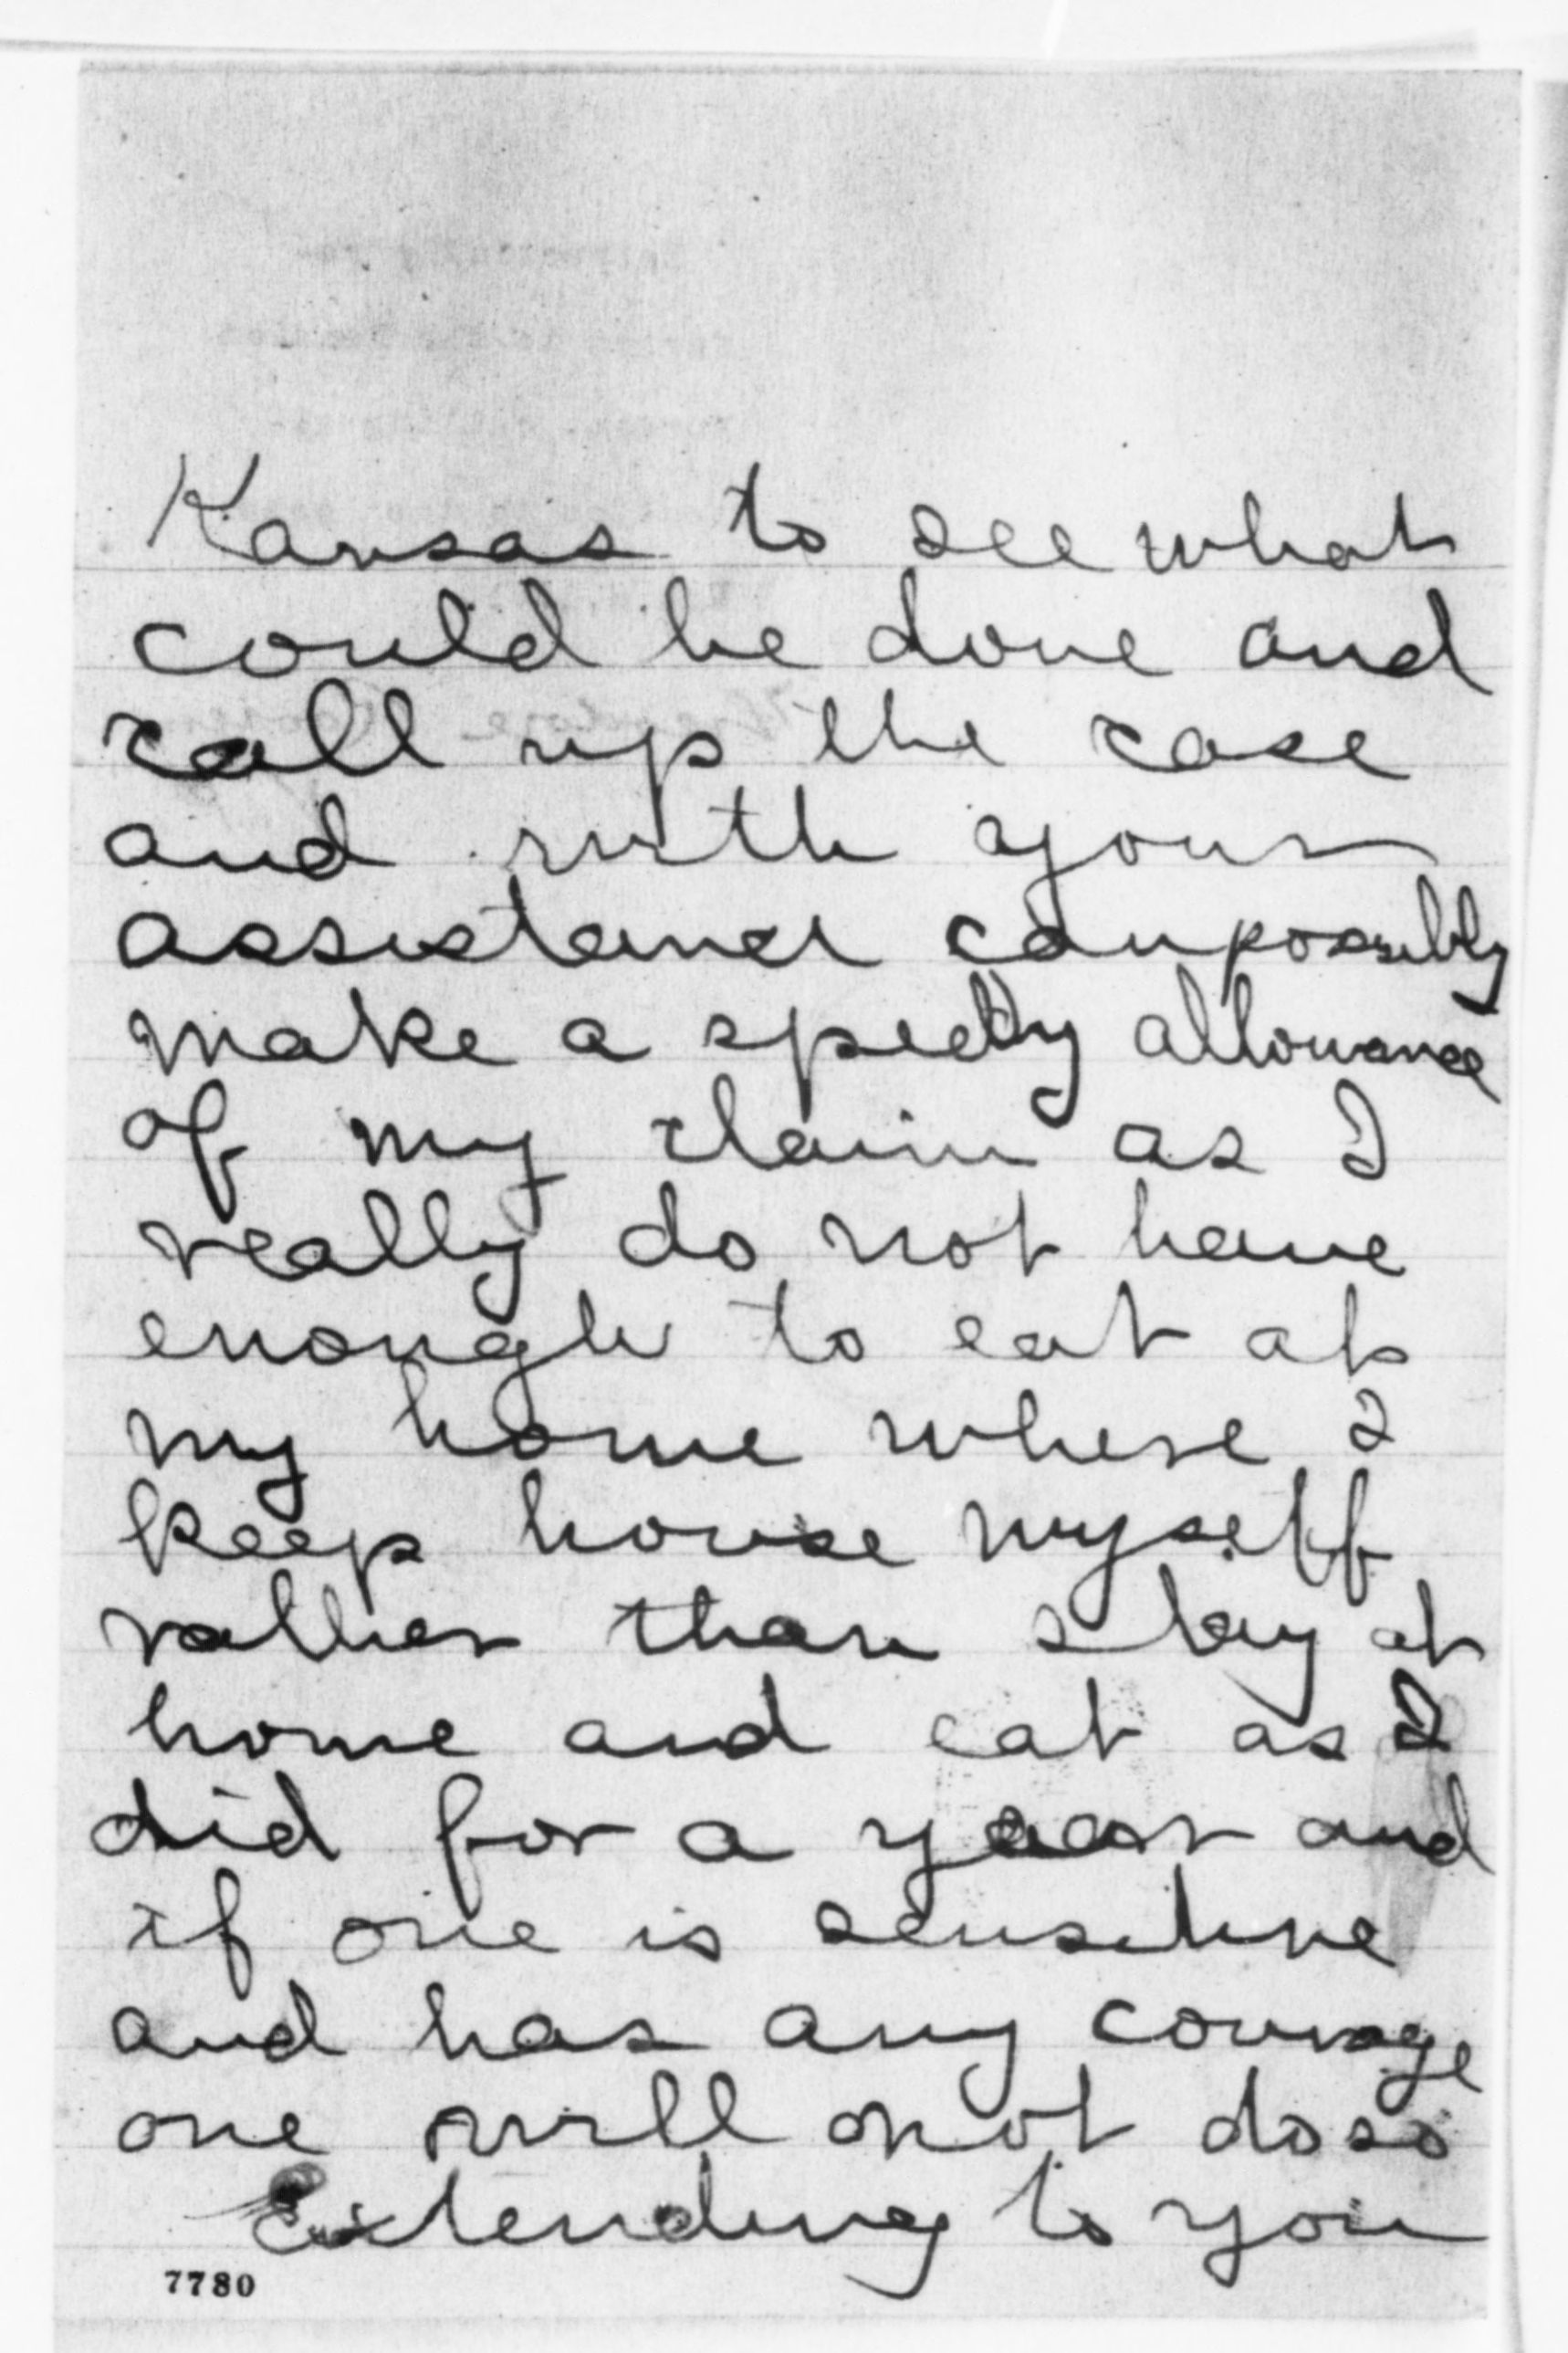 Kansas to see what
could be done and
call up the case
and with your
assistance can possibly
make a speedy allowance
of my claim as I
really do not have
enough to eat at
my home where I
keep house myself
rather than stay at
home and eat as I
did for a year and
if one is sensitive
and has any courage
one will not do so
Extending to you
7780